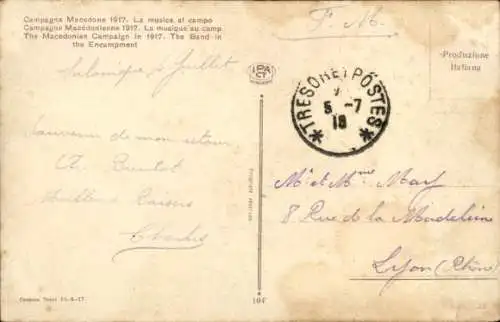 Campagna Macedone 1917. La musica al campo
Campagne Macédonienne 1917. La musique au camp
The Macedonian Campaign in 1917. The Band in
the Encampment
F. M.
Produzione
Italiana
IPA
CT
TRESOR ET POSTES
5 -7
18
Salonique 4 Juillet
Souvenir de mon retour
Baisers
Charles
Mr et Mme May
8 Rue de la Madeleine
Lyon (Rhône)
104